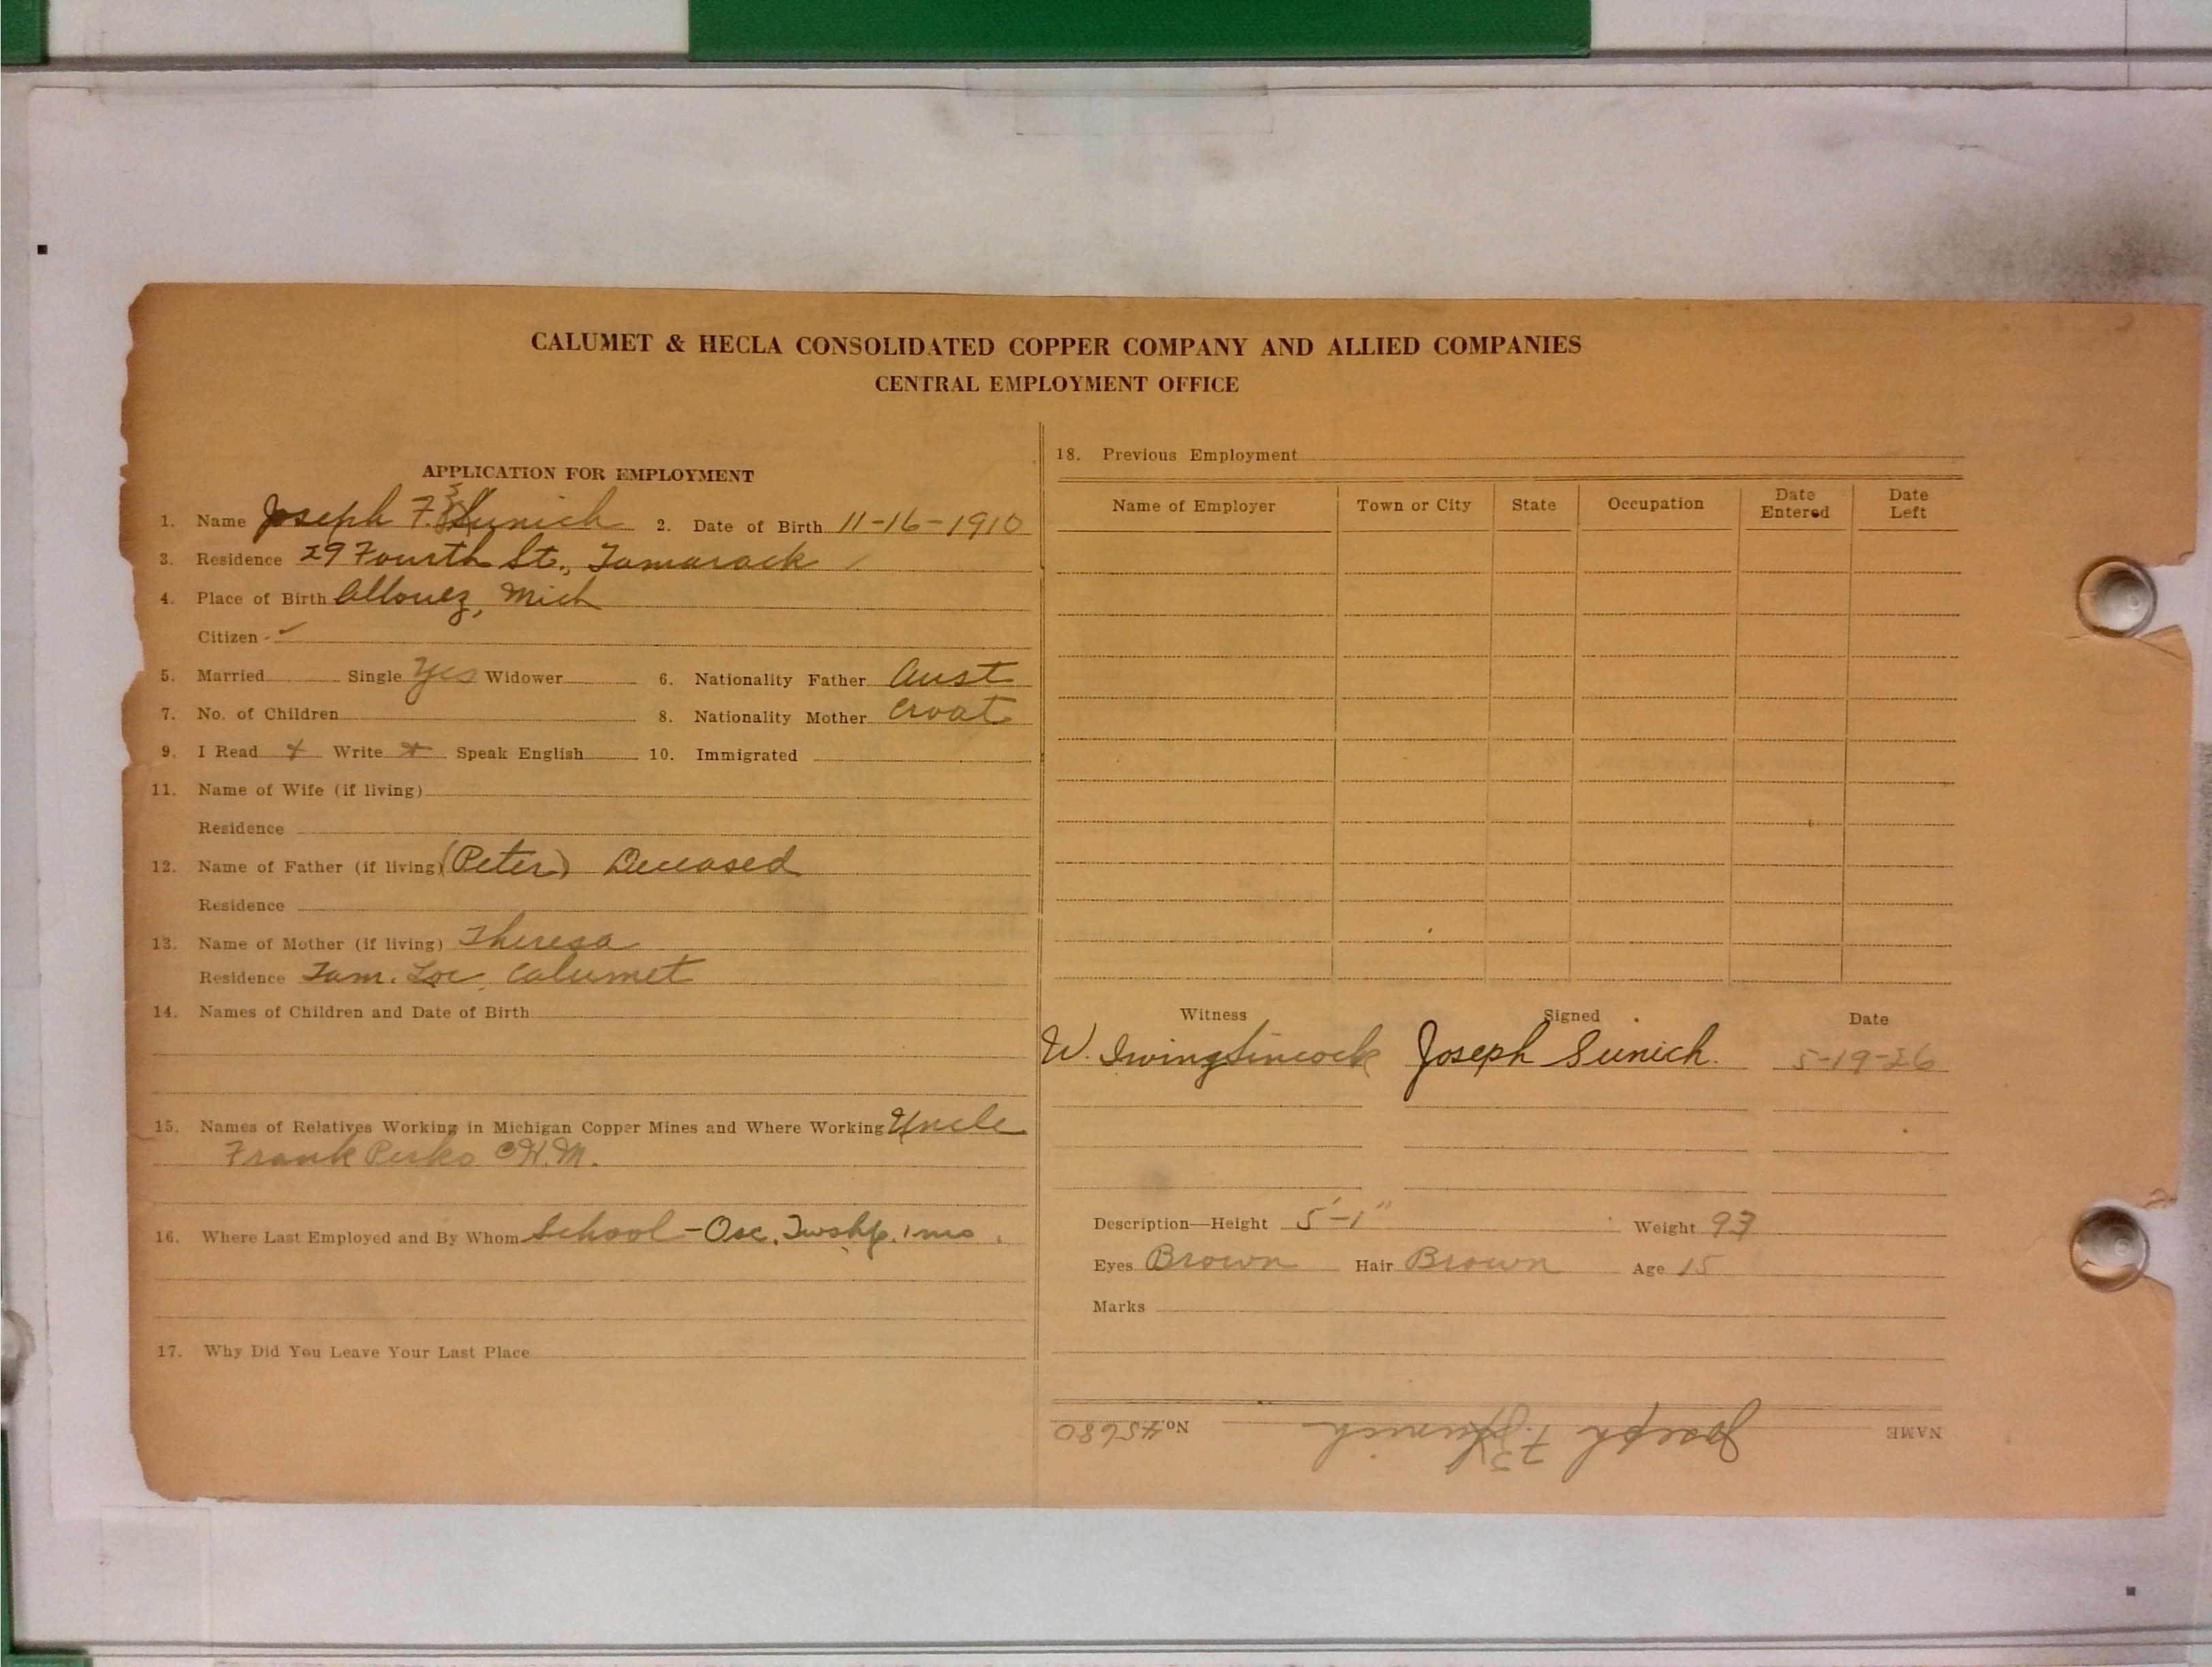 CALUMET & HECLA CONSOLIDATED COPPER COMPANY AND ALLIED COMPANIES
CENTRAL EMPLOYMENT OFFICE
APPLICATION FOR EMPLOYMENT
1. Name Joseph F. Sunich 2. Date of Birth 11-16-1910
3. Residence 29 Fourth St., Tamarack
4. Place of Birth Allouez, Mich
Citizen
5. Married Single Yes Widower 6. Nationality Father Aust
7. No. of Children 8. Nationality Mother Croat
9. I Read Write Speak English 10. Immigrated
11. Name of Wife (if living)
Residence
12. Name of Father (if living) (Peter) Deceased
Residence
13. Name of Mother (if living) Theresa
Residence Tam. Loc. Calumet
14. Names of Children and Date of Birth
15. Names of Relatives Working in Michigan Copper Mines and Where Working Uncle
Frank Perko C.H.M.
16. Where Last Employed and By Whom School - Osc. Twshp. 1 mo.
17. Why Did You Leave Your Last Place
18. Previous Employment
Name of Employer Town or City State Occupation Date Entered Date Left
Witness Signed Date
W. Irving Sincock Joseph Sunich. 5-19-26
Description—Height 5'-1" Weight 93
Eyes Brown Hair Brown Age 15
Marks
NAME Joseph F. Sunich No. 45680